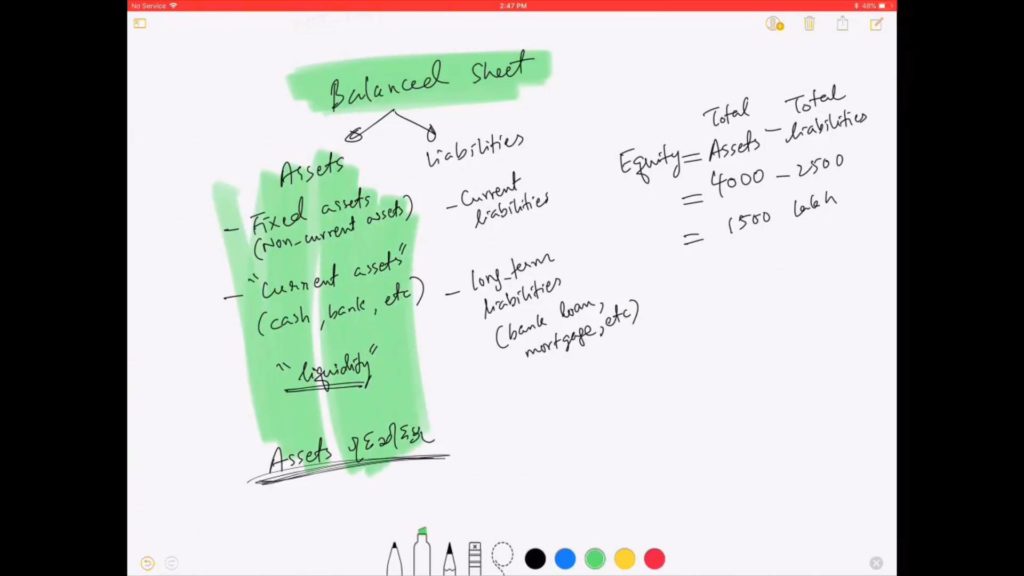 No Service
2:47 PM
48%
Balanced Sheet
Assets
- Fixed assets
(Non-current assets)
- "Current assets"
(cash, bank, etc)
"liquidity"
Assets
Liabilities
- Current
liabilities
- long-term
liabilities
(bank loan,
mortgage, etc)
Equity = Total Assets - Total liabilities
= 4000 - 2500
= 1500 lakh